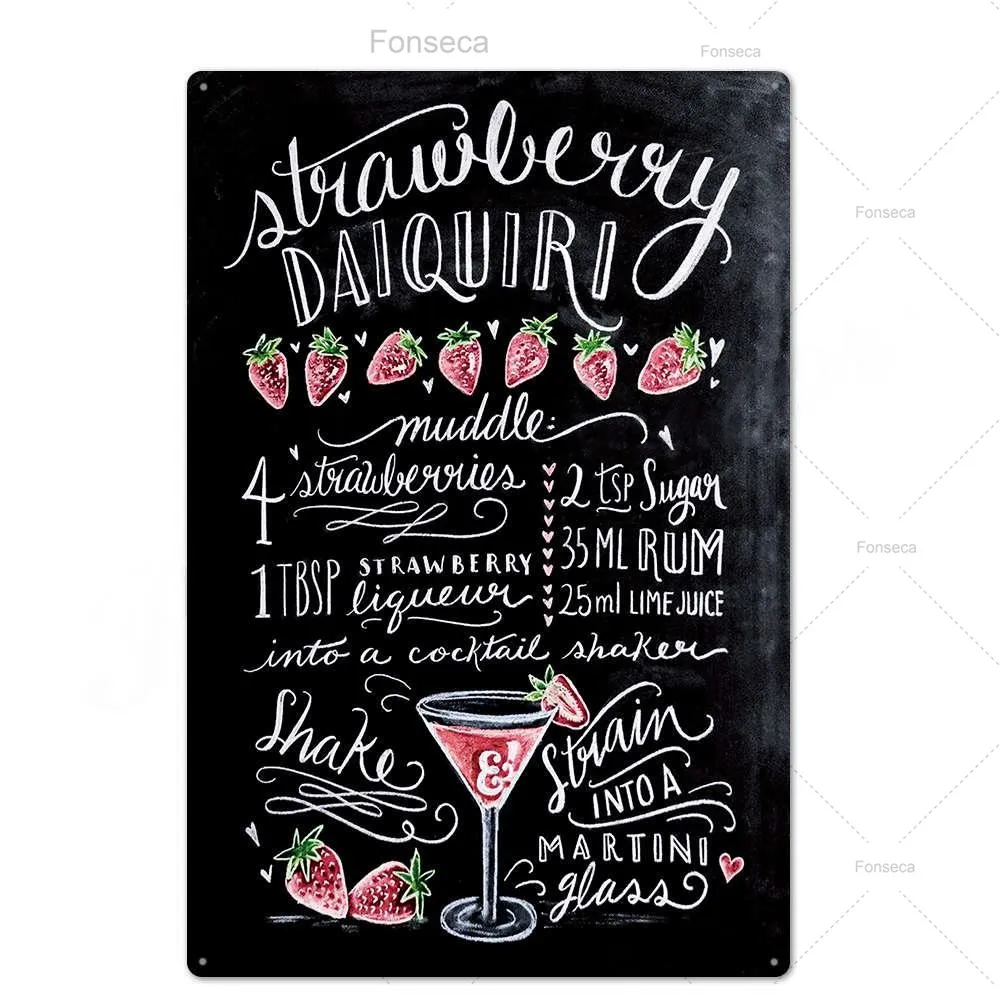 Fonseca
Fonseca
strawberry
DAIQUIRI
muddle:
4 strawberries
2 tsp Sugar
35 ML RUM
1 TBSP STRAWBERRY liqueur
25ml LIME JUICE
into a cocktail shaker
Shake
&
Strain
INTO A
MARTINI
glass
Fonseca
Fonseca
Fonseca